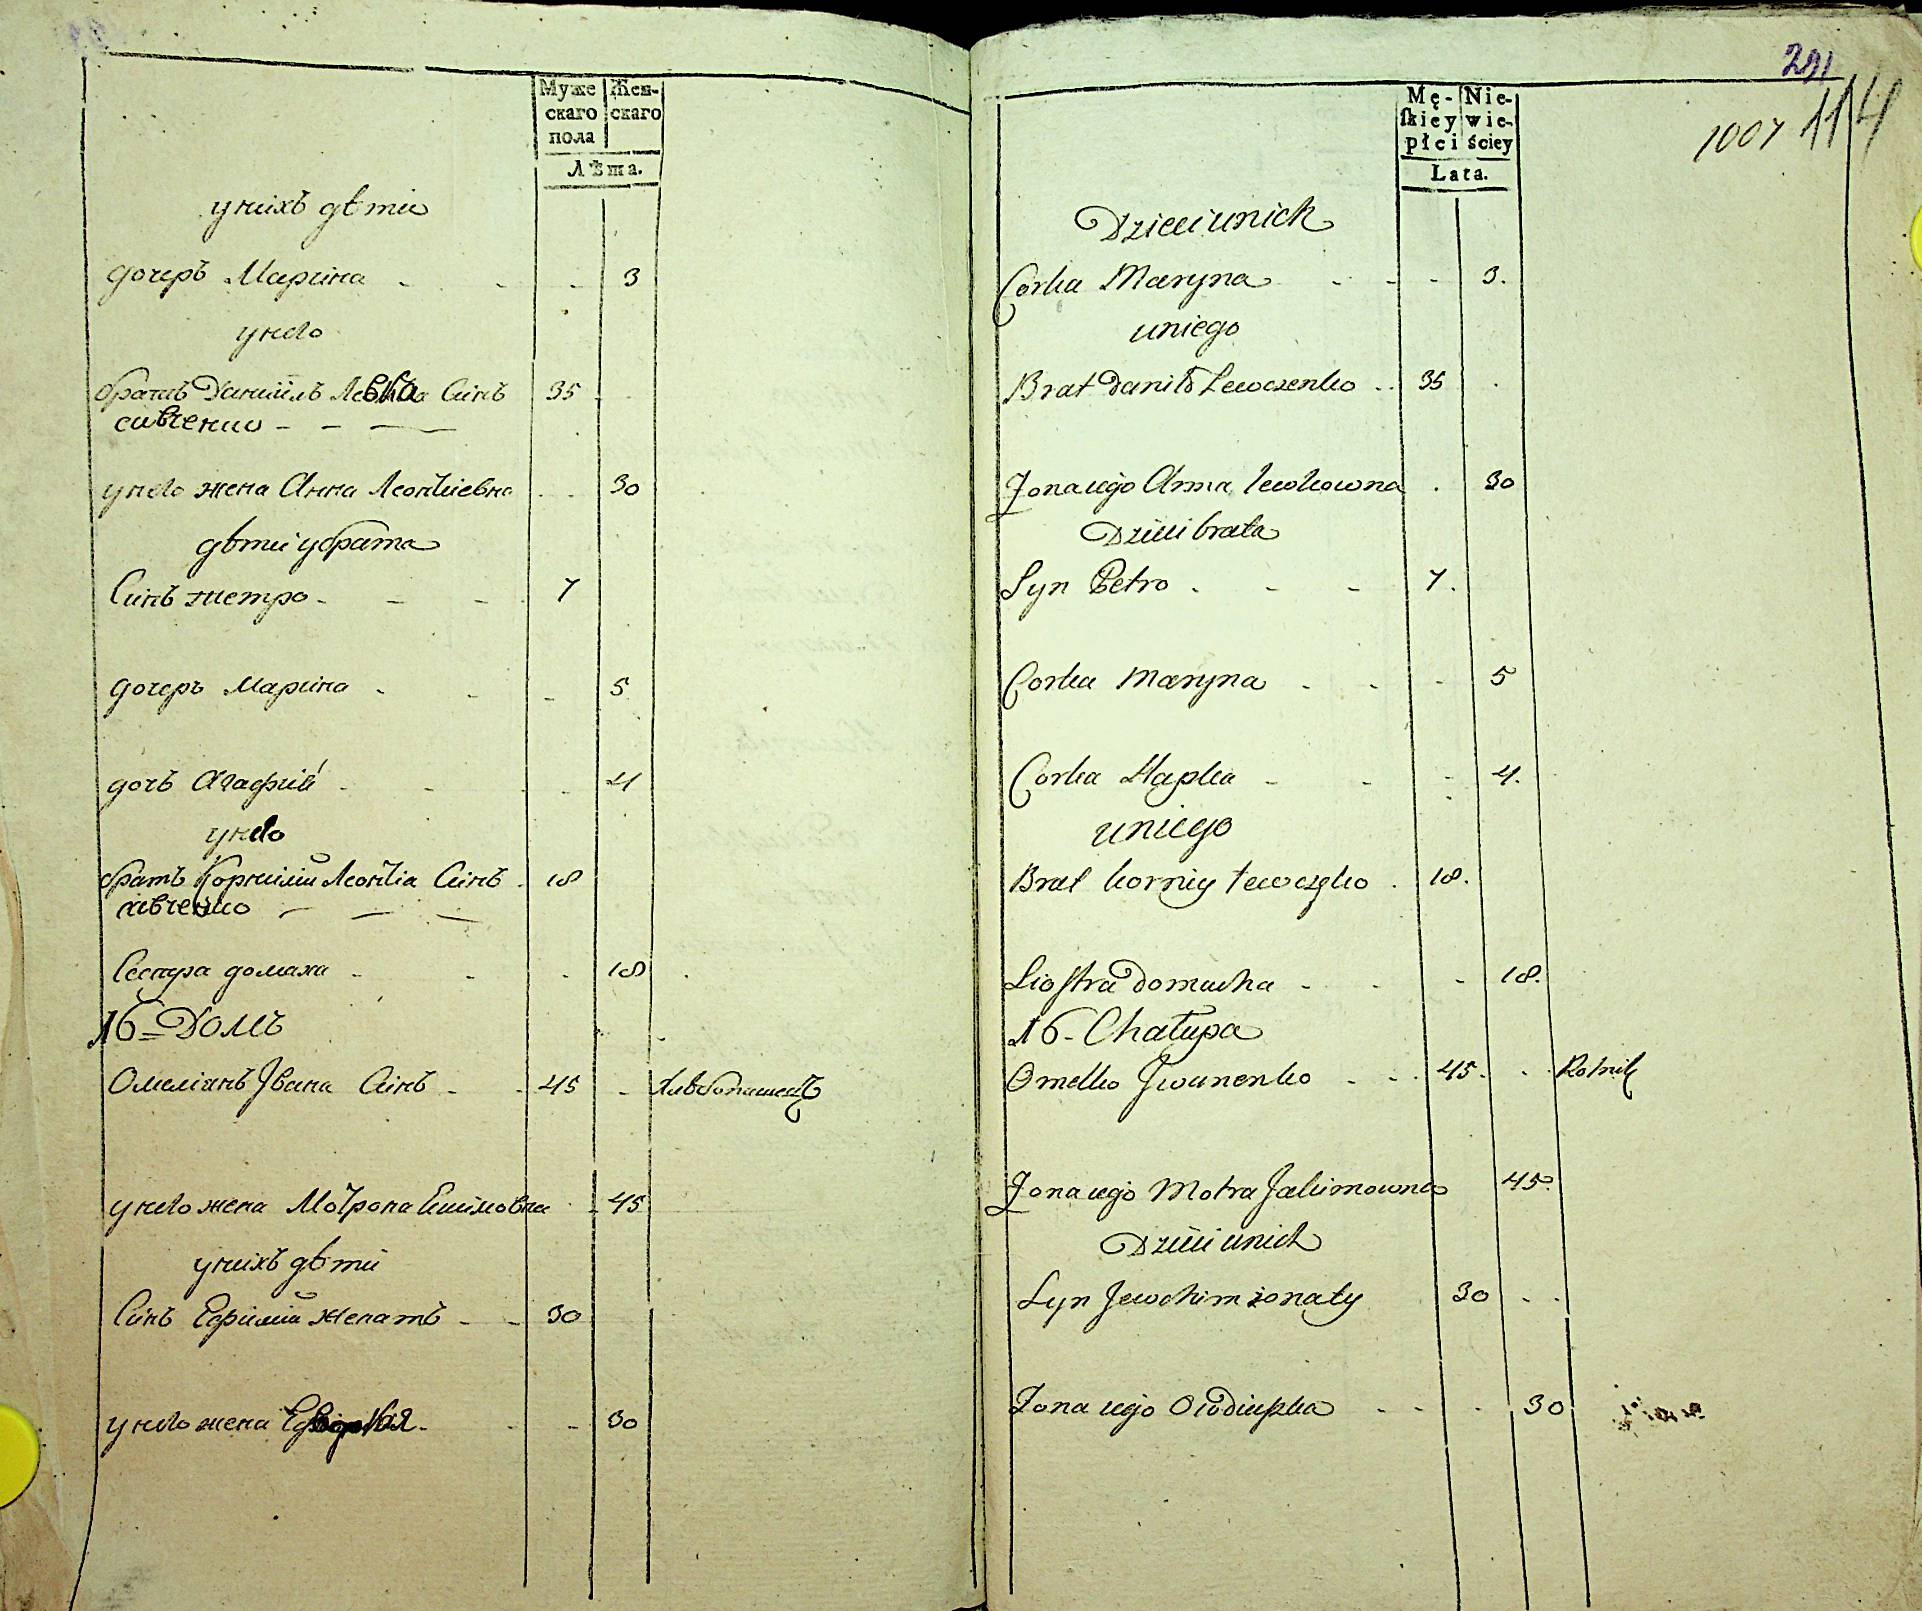 Муже
скаго
пола
Жен-
скаго
Лѣта.
у нихъ дѣти
дочеръ Марина - - - 3
у него
братъ Данiилъ Левка Синъ 35
сивченко - - -
у него жена Анна Леонтiевна - - 30
дѣти у брата
Синъ петро - - - 7
дочеръ Марина - - - 5
дочь Агафия - - - 4
у него
братъ Корнилiй Леонтiа Синъ - 18
сивченко - - -
Сестра домаха - - - 18
16 = Домъ
Омелiанъ Iвана Синъ - - 45 - хлѣбопашецъ
у него жена Мотрона Екимовна - 45
у нихъ дѣти
Синъ Ефимiй женатъ - - 30
у него жена - - 30
291
1007 114
Mę-
skiey
płci
Nie-
wie-
ściey
Lata.
Dzieci unich
Corka Maryna - - - 3.
uniego
Brat Daniło Lewczenko - - 35
Zona iego Anna Lewkowna . 30
Dzieci brata
Syn Petro - - - 7.
Corka Maryna - - - 5
Corka Hapka - - - 4.
uniego
Brat korniy - 18.
Siostra Domacha - - - 18.
16 - Chałupa
Omelko Iwanenko - - - 45. - - Rolnik
Zona iego Motra Jakimowna 45.
Dzieci unich
Syn Jewchim żonaty 30 - -
Zona iego - - - 30